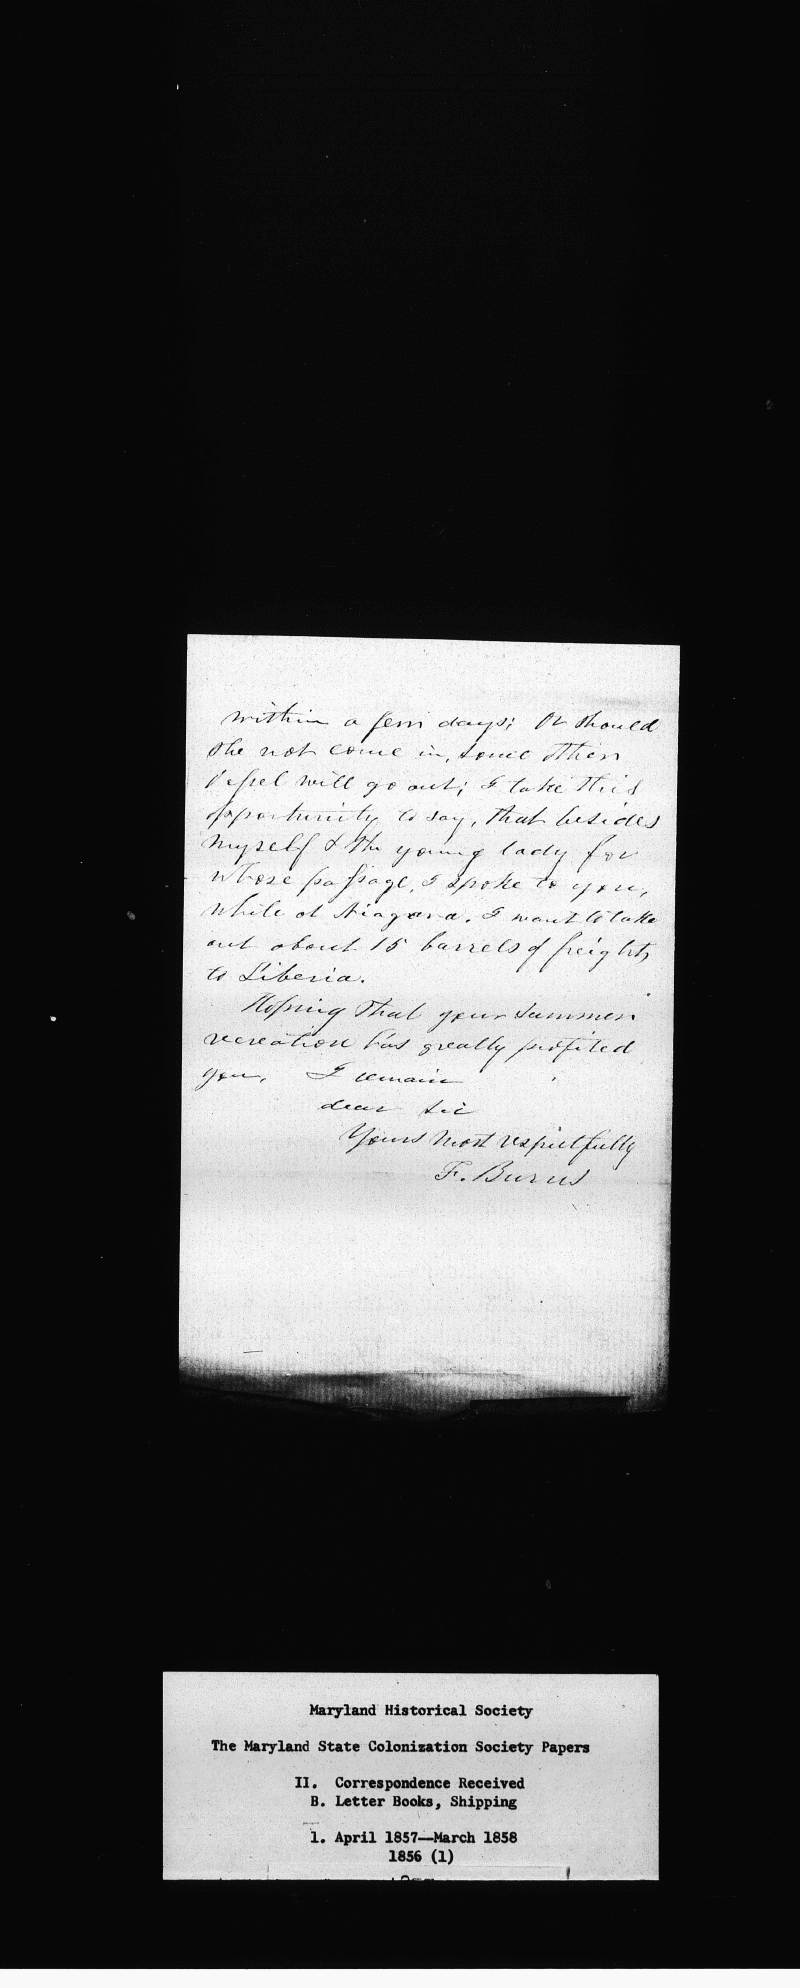 within a few days; Or should
she not come in, some other
Vessel will go out; I take this
opportunity to say, that besides
myself & the young lady for
whose passage, I spoke to you,
while at Niagara. I want to take
out about 15 barrels of freight,
to Liberia.
Hoping that your summer
recreation has greatly profited
you, I remain
dear Sir
Yours most respectfully
F. Burns
Maryland Historical Society
The Maryland State Colonization Society Papers
II. Correspondence Received
B. Letter Books, Shipping
1. April 1857—March 1858
1856 (1)